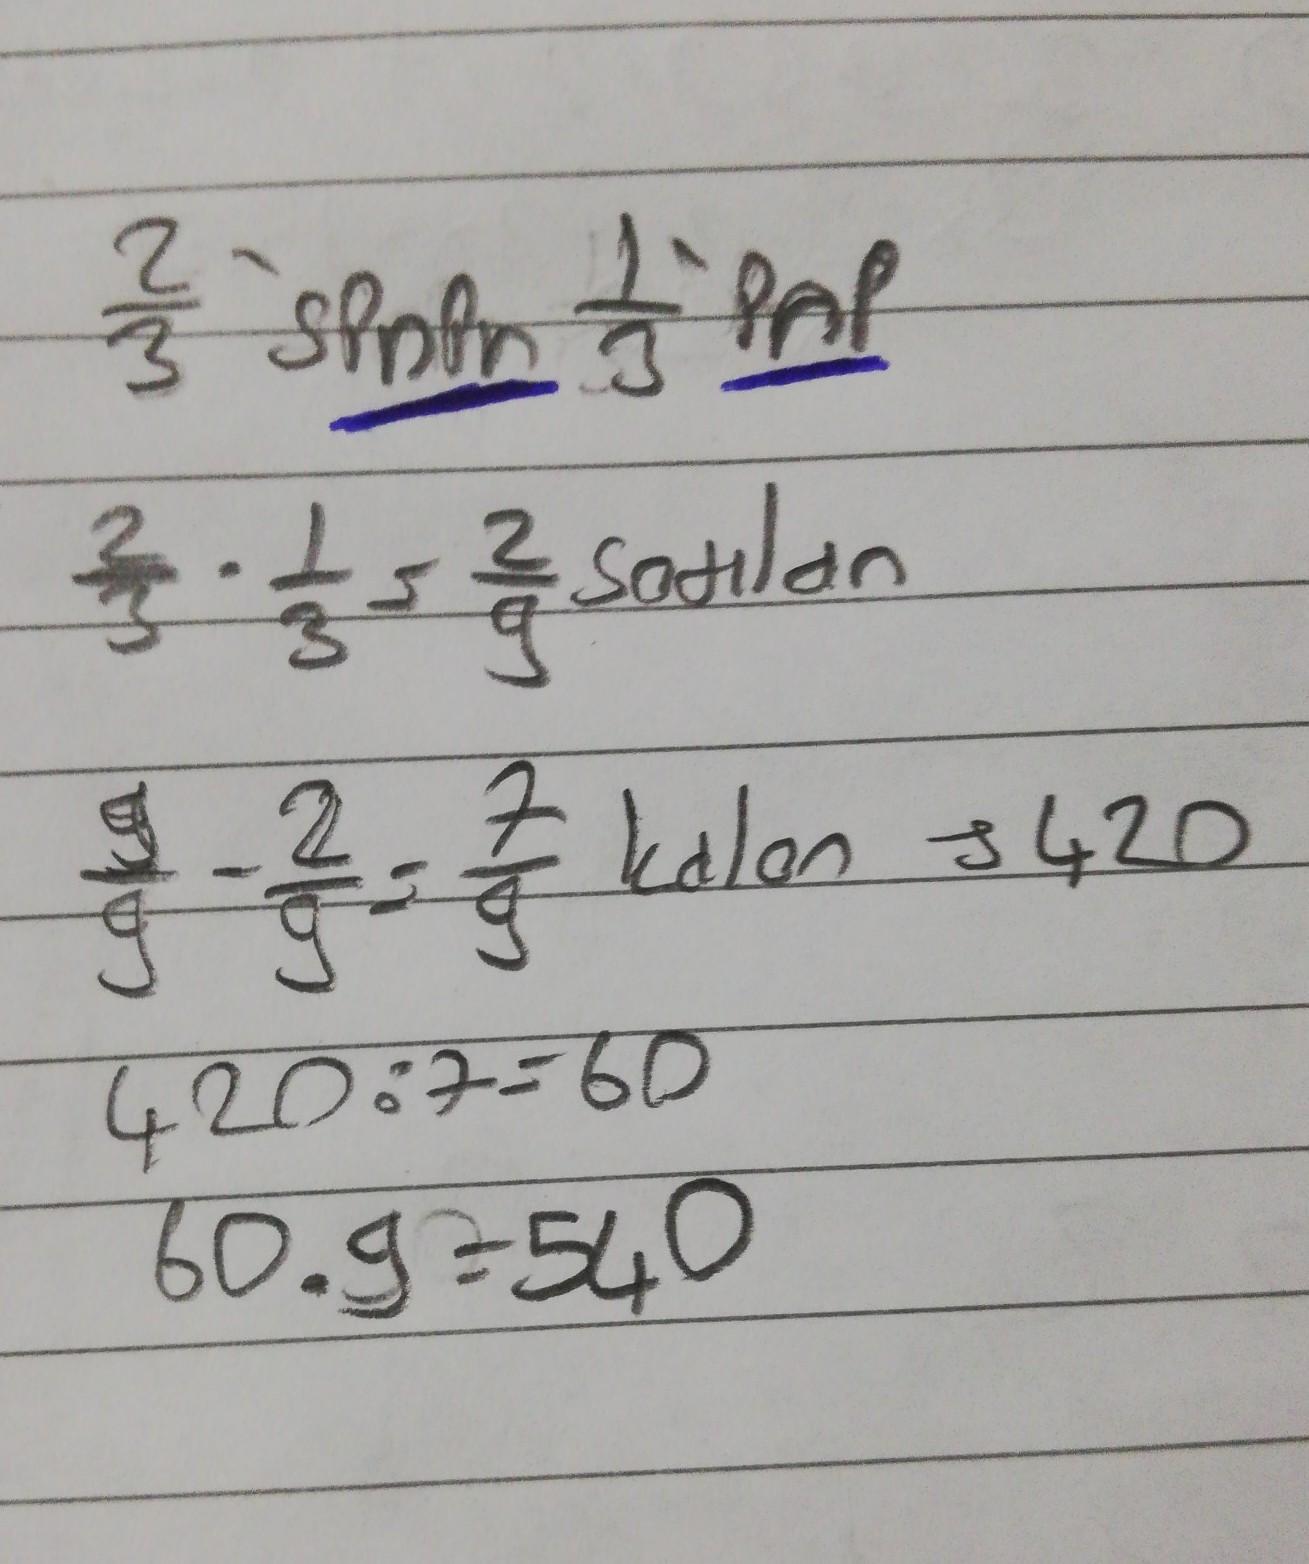 2/3 'senen 1/3 'ene
2/3 . 1/3 = 2/9 Satılan
9/9 - 2/9 = 7/9 kalan → 420
420 : 7 = 60
60 . 9 = 540